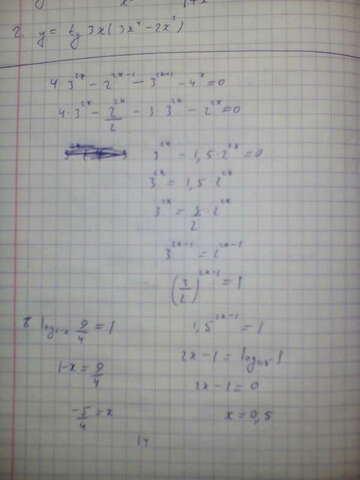 2. y = tg 3x (3x⁴ - 2x³)
4·3^{2x} - 2^{2x-1} - 3^{2x+1} - 4^x = 0
4·3^{2x} - \frac{2^{2x}}{2} - 3·3^{2x} - 2^{2x} = 0
3^{2x} - 1,5·2^{2x} = 0
3^{2x} = 1,5·2^{2x}
3^{2x} = \frac{3}{2}·2^{2x}
3^{2x-1} = 2^{2x-1}
(\frac{3}{2})^{2x-1} = 1
8. log_{1-x} \frac{9}{4} = 1
1,5^{2x-1} = 1
1-x = \frac{9}{4}
2x-1 = log_{1,5} 1
2x-1 = 0
\frac{-5}{4} = x
x = 0,5